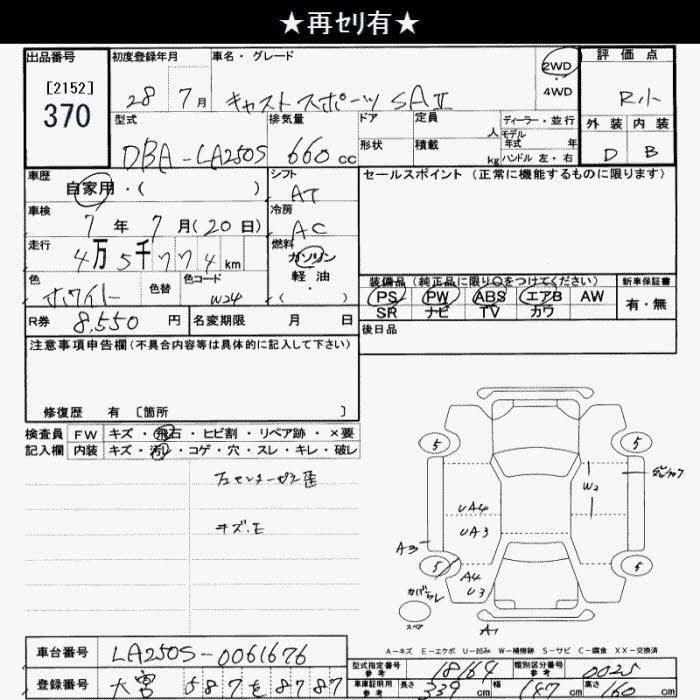 ★再セリ有★
出品番号 初度登録年月 車名・グレード 2WD 評価点
[2152] 28 7月 キャストスポーツ SAⅡ ・ 4WD R小
370 型式 排気量 ドア 定員 人 ディーラー・並行 外装 内装
DBA-LA250S 660cc 形状 積載 kg モデル年式 年 D B
ハンドル 左・右
車歴 シフト セールスポイント (正常に機能するものに限ります)
自家用・( ) AT
車検 冷房
7年7月(20日) AC
走行 燃料
4万5千774km ガソリン
軽・油
色 色替 色コード ・( ) 装備品 (純正品に限り○をつけてください) 新車保証書
ホワイト W24 PS PW ABS エアB AW 有・無
SR ナビ TV カワ
R券 8,550円 名変期限 月 日 後日品
注意事項申告欄(不具合内容等は具体的に記入して下さい)
修復歴 有 [箇所 ]
検査員 FW キズ・飛石・ヒビ割・リペア跡・×要
記入欄 内装 キズ・汚レ・コゲ・穴・スレ・キレ・破レ
左センターピラー歪
キズ.E
5 5
W2
UA4
UA3
A3
5 5
A4
U3
スペア
A1
A=キズ E=エクボ U=凹み W=補修跡 S=サビ C=腐食 XX=交換済
車台番号 LA250S-0061676
型式指定番号 参考 18164 類別区分番号 参考 0025
登録番号 大宮 587を8787
車庫証明用 参考 長さ 339cm 幅 147cm 高さ 160cm